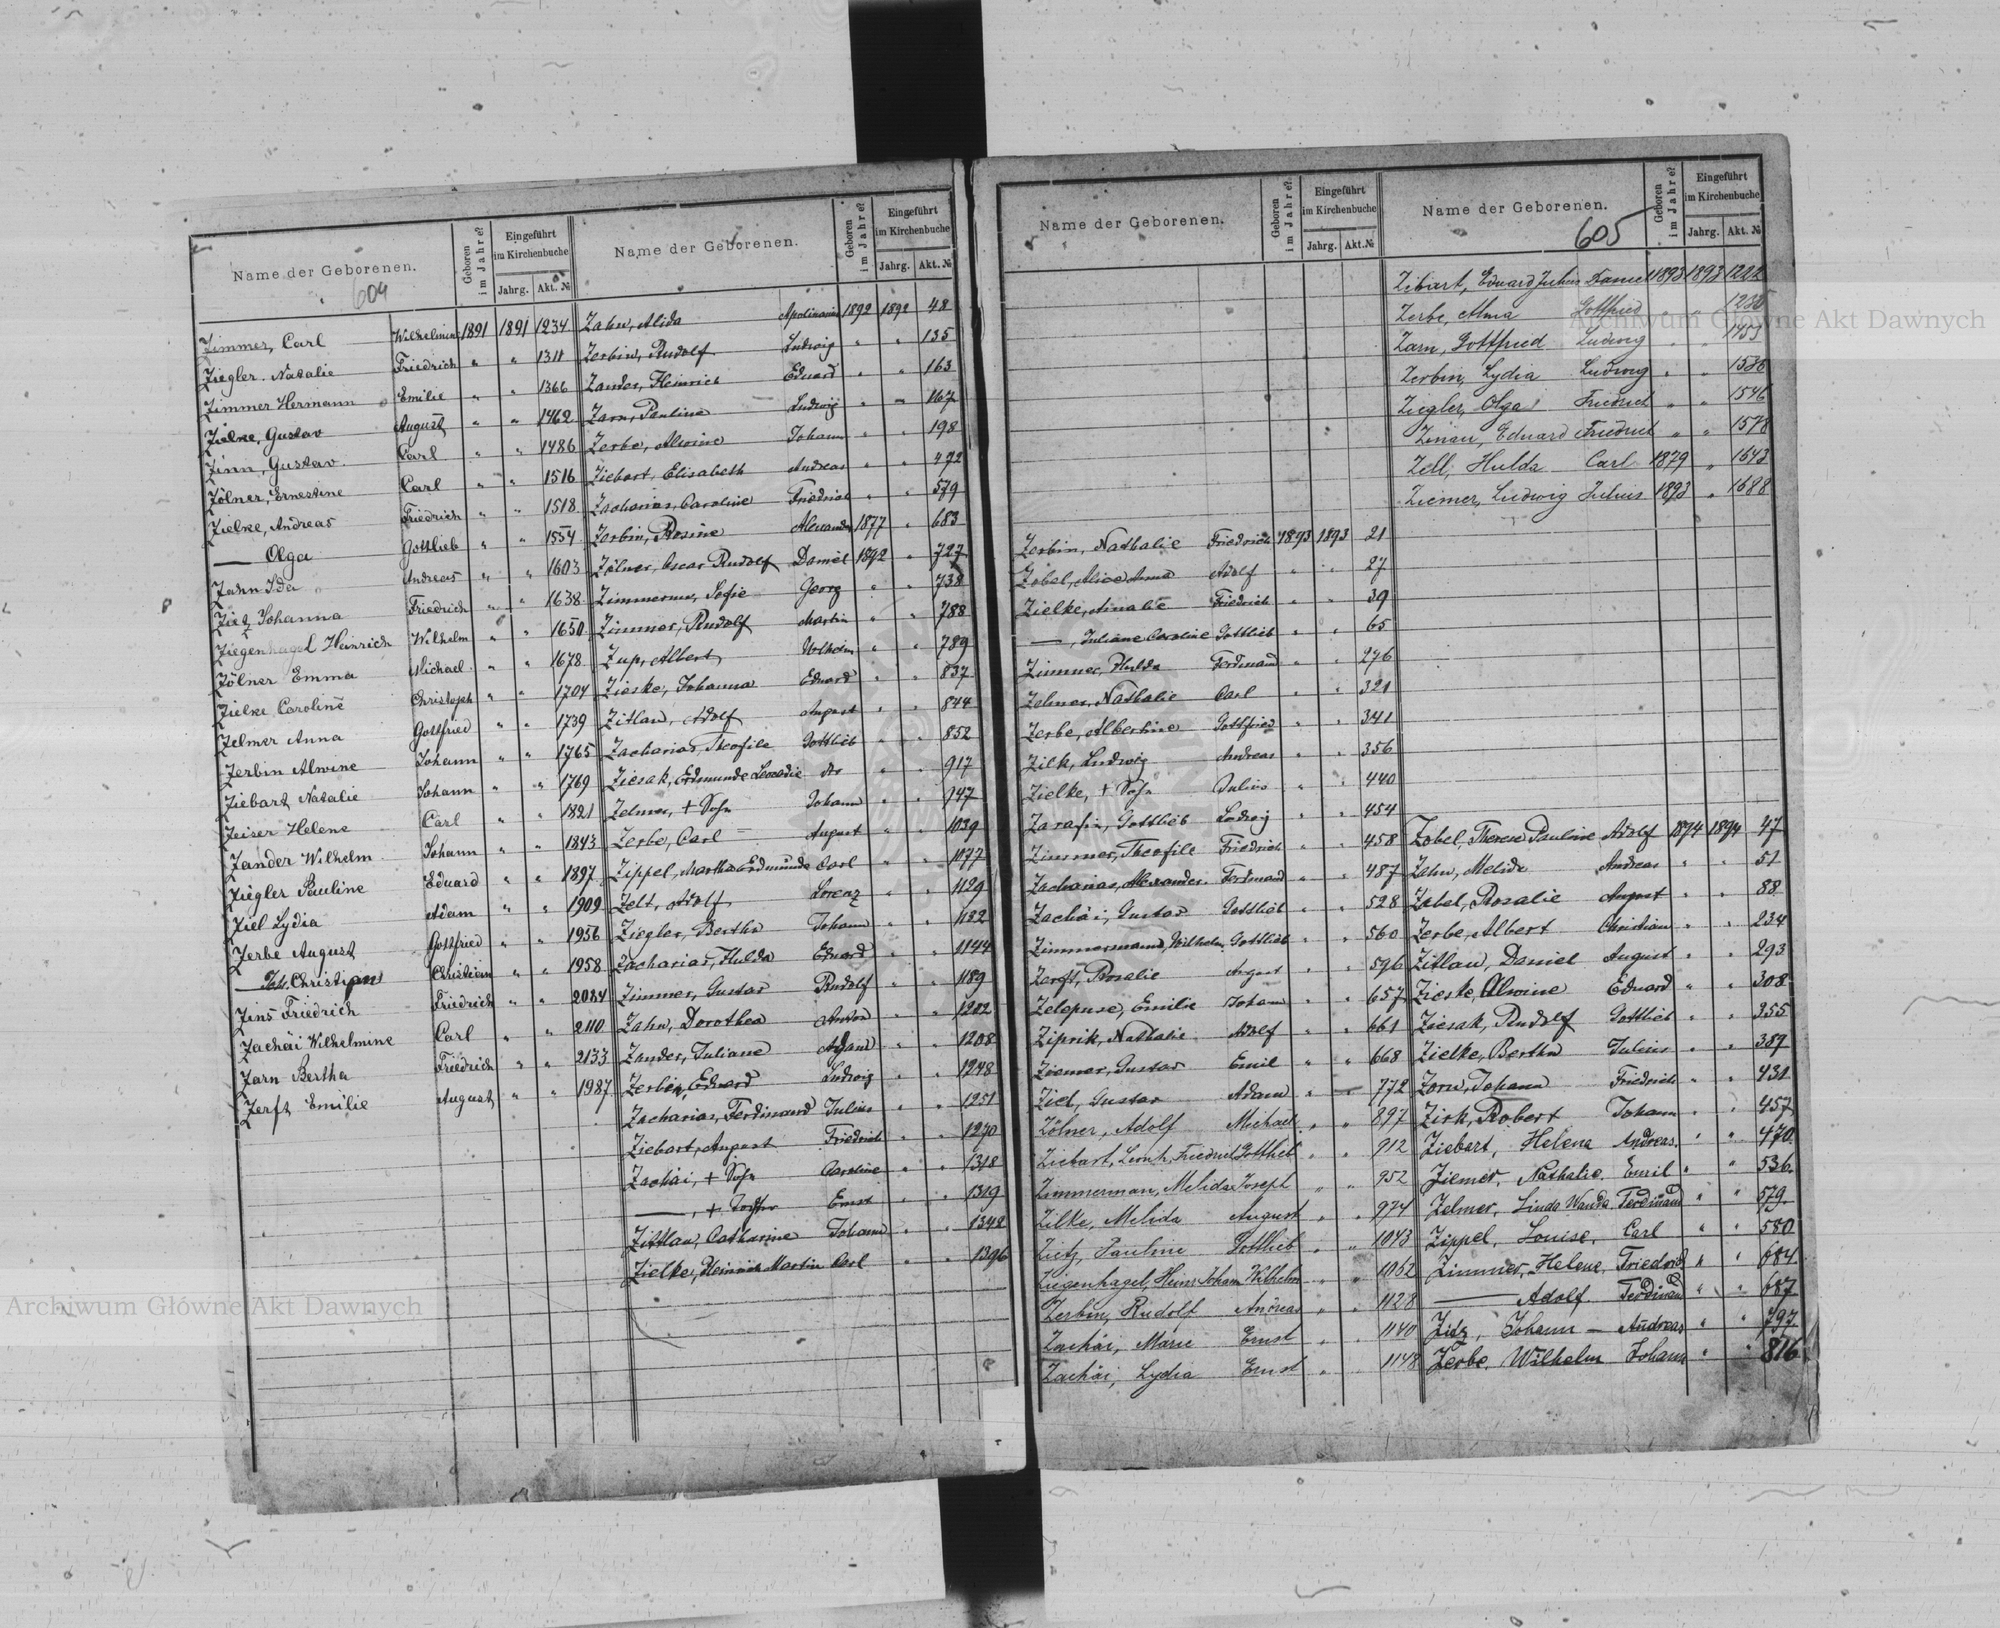 604
Name der Geborenen. Geboren im Jahre? Eingeführt im Kirchenbuche Jahrg. Akt. №
Zimmer, Carl Wilhelmine 1891 1891 1234
Ziegler. Natalie Friedrich " " 1311
Zimmer Hermann Emilie " " 1366
Zielke, Gustav August " " 1462
Zinn, Gustav. Carl " " 1486
Zölner, Ernestine Carl " " 1516
Zielke, Andreas Friedrich " " 1518
— Olga Gottlieb " " 1554
Zahn Ida Andreas " " 1603
Zietz Johanna Friedrich " " 1638
Ziegenhagel Heinrich Wilhelm " " 1650
Zölner Emma Michael " " 1678
Zielke Caroline Christoph " " 1704
Zelmer Anna Gottfried " " 1739
Zerbin Alwine Johann " " 1765
Ziebart Natalie Johann " " 1769
Zeiser Helene Carl " " 1821
Zander Wilhelm Johann " " 1843
Ziegler Pauline Eduard " " 1897
Ziel Lydia Adam " " 1909
Zerbe August Gottfried " " 1956
— Christian Christian " " 1958
Zins Friedrich Friedrich " " 2084
Zachäi Wilhelmine Carl " " 2110
Zarn Bertha Friedrich " " 2133
Zerft Emilie August " " 1987
Name der Geborenen. Geboren im Jahre? Eingeführt im Kirchenbuche Jahrg. Akt. №
Zahn, Alida 1892 1892 48
Zerbin, Rudolf Ludwig " " 135
Zander, Heinrich Eduard " " 163
Zarn, Pauline Ludwig " " 167
Zerbe, Alwine Johann " " 198
Ziebart, Elisabeth Andreas " " 472
Zacharias, Caroline Friedrich " " 579
Zerbin, Rosine Alexander 1877 " 683
Zölner, Oscar Rudolf Daniel 1892 " 727
Zimmerman, Sofie Georg " " 738
Zimmer, Rudolf Martin " " 788
Zup, Albert Wilhelm " " 789
Zieske, Johanna Eduard " " 837
Zitlau, Adolf August " " 844
Zacharias, Theofile Gottlieb " " 852
Ziesak, Edmunde Leocadie " " 917
Zelmer, + Sohn Johann " " 947
Zerbe, Carl August " " 1039
Zippel, Martha Edmunde Carl " " 1077
Zelt, Adolf Lorenz " " 1129
Ziegler, Bertha Johann " " 1132
Zacharias, Hulda Eduard " " 1144
Zimmer, Gustav Rudolf " " 1189
Zahn, Dorothea Anton " " 1202
Zander, Juliane Adam " " 1208
Zerbin, Eduard Ludwig " " 1248
Zacharias, Ferdinand Julius " " 1251
Ziebart, August Friedrich " " 1270
Zachäi, + Sohn Caroline " " 1318
—, + Tochter Ernst " " 1319
Zittlau, Catharine Johann " " 1348
Zielke, Heinrich Martin Carl " " 1396
Name der Geborenen. Geboren im Jahre? Eingeführt im Kirchenbuche Jahrg. Akt. №
Zerbin, Nathalie Friedrich 1893 1893 21
Zobel, Alice Anna Adolf " " 27
Zielke, Amalie Friedrich " " 39
—, Juliane Caroline Gottlieb " " 65
Zimmer, Hulda Ferdinand " " 276
Zelmer, Nathalie Carl " " 321
Zerbe, Albertine Gottfried " " 341
Zilk, Ludwig Andreas " " 356
Zielke, + Sohn Julius " " 440
Zarafin, Gottlieb Ludwig " " 454
Zimmer, Theofile Friedrich " " 458
Zacharias, Alexander Ferdinand " " 487
Zachäi, Gustav Gottlieb " " 528
Zimmermann, Wilhelm Gottlieb " " 560
Zerft, Rosalie August " " 596
Zelepuse, Emilie Johann " " 657
Ziprik, Nathalie Adolf " " 661
Ziemer, Gustav Emil " " 668
Ziel, Gustav Adam " " 772
Zölner, Adolf Michael " " 897
Ziebart, Leonh. Friedrich Gottlieb " " 912
Zimmerman, Melida Joseph " " 952
Zilke, Melida August " " 974
Zietz, Pauline Gottlieb " " 1043
Ziegenhagel, Heinr. Johann Wilhelm " " 1062
Zerbin, Rudolf Andreas " " 1128
Zachäi, Marie Ernst " " 1140
Zachäi, Lydia Ernst " " 1148
605
Name der Geborenen. Geboren im Jahre? Eingeführt im Kirchenbuche Jahrg. Akt. №
Zibart, Eduard Julius Daniel 1893 1893 1222
Zerbe, Alma Gottfried " "
Zarn, Gottfried Ludwig " "
Zerbin, Lydia Ludwig " " 1538
Ziegler, Olga Friedrich " " 1546
Zinau, Eduard Friedrich " " 1578
Zell, Hulda Carl 1879 " 1643
Ziemer, Ludwig Julius 1893 " 1688
Zobel, Therese Pauline Adolf 1894 1894 47
Zahn, Melida Andreas " " 51
Zabel, Rosalie August " " 88
Zerbe, Albert Christian " " 234
Zitlau, Daniel August " " 293
Zieske, Alwine Eduard " " 308
Ziesak, Rudolf Gottlieb " " 355
Zielke, Bertha Julius " " 387
Zorn, Johann Friedrich " " 431
Zirk, Robert Johann " " 457
Ziebart, Helena Andreas " " 470
Ziemer, Nathalie. Emil " " 536
Zelmer, Linda Wanda Ferdinand " " 579
Zippel, Louise, Carl " " 580
Zimmer, Helene Friedrich " " 684
— Adolf Ferdinand " " 687
Zietz, Johann — Andreas " " 797
Zerbe, Wilhelm Johann " " 816
Archiwum Główne Akt Dawnych
Archiwum Główne Akt Dawnych